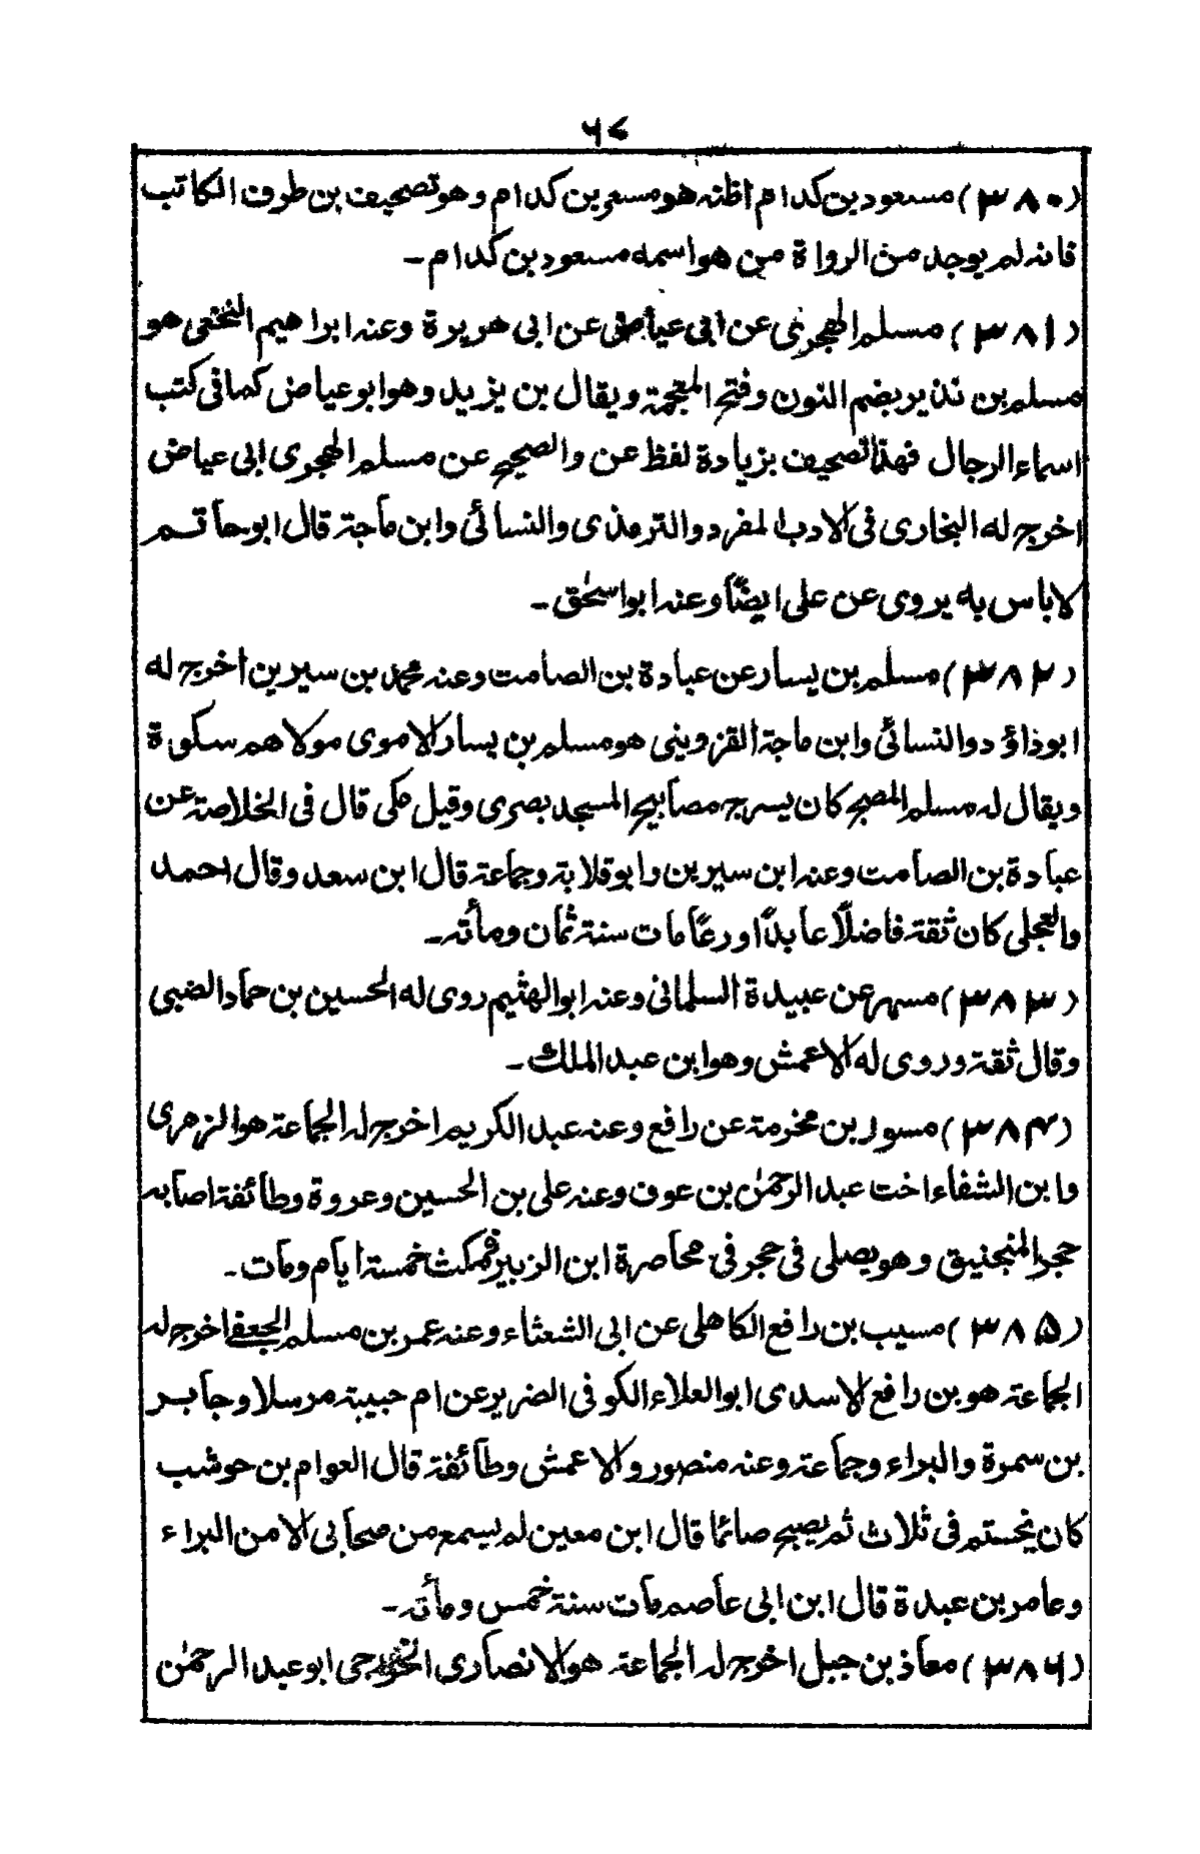 ۶۷
(۳۸۰) مسعود بن كدام اظنه هو مسعر بن كدام وهو تصحيف بن طرف الكاتب
فانه لم يوجد من الرواة من هو اسمه مسعود بن كدام ـ
(۳۸۱) مسلم الهجري عن ابي عياض عن ابي هريرة وعنه ابراهيم النخعي هو
مسلم بن نذير بضم النون وفتح المعجمة ويقال بن يزيد وهو ابو عياض كما في كتب
اسماء الرجال فهذا تصحيف بزيادة لفظ عن والصحيح عن مسلم الهجري ابي عياض
اخرج له البخاري في الادب المفرد والترمذي والنسائي وابن ماجة قال ابو حاتم
لاباس به يروى عن علي ايضًا وعنه ابو اسحٰق ـ
(۳۸۲) مسلم بن يسار عن عبادة بن الصامت وعنه محمد بن سيرين اخرج له
ابوذاؤد والنسائي وابن ماجة القزويني هو مسلم بن يسار الاموي مولاهم سكورة
ويقال له مسلم المصبح كان يسرج مصابيح المسجد بصرى وقيل مكى قال في الخلاصة عن
عبادة بن الصامت وعنه ابن سيرين وابو قلابة وجماعة قال ابن سعد وقال احمد
والعجلي كان ثقة فاضلًا عابدًا ورعًا مات سنة ثمان ومأته ـ
(۳۸۳) مسهر عن عبيدة السلماني وعنه ابو الهثيم روى له الحسين بن حماد الضبي
وقال ثقة وروى له الاعمش وهو ابن عبد الملك ـ
(۳۸۴) مسور بن مخرمة عن رافع وعنه عبد الكريم اخرج له الجماعة هو الزهري
وابن الشفاء اخت عبد الرحمٰن بن عوف وعنه علي بن الحسين وعروة وطائفة اصابه
حجر المنجنيق وهو يصلى في حجر في محاصرة ابن الزبير فمكث خمسة ايام ومات ـ
(۳۸۵) مسيب بن رافع الكاهلي عن ابي الشعثاء وعنه عمر بن مسلم الجعفي اخرج له
الجماعة هو بن رافع الاسدي ابو العلاء الكوفي الضرير عن ام حبيبة مرسلا وجابر
بن سمرة والبراء وجماعة وعنه منصور والاعمش وطائفة قال العوام بن حوشب
كان يختم في ثلاث ثم يصبح صائما قال ابن معين لم يسمع من صحابي الا من البراء
وعامر بن عبدة قال ابن ابي عاصم مات سنة خمس ومأته ـ
(۳۸۶) معاذ بن جبل اخرج له الجماعة هو الانصاري الخزرجي ابو عبد الرحمٰن